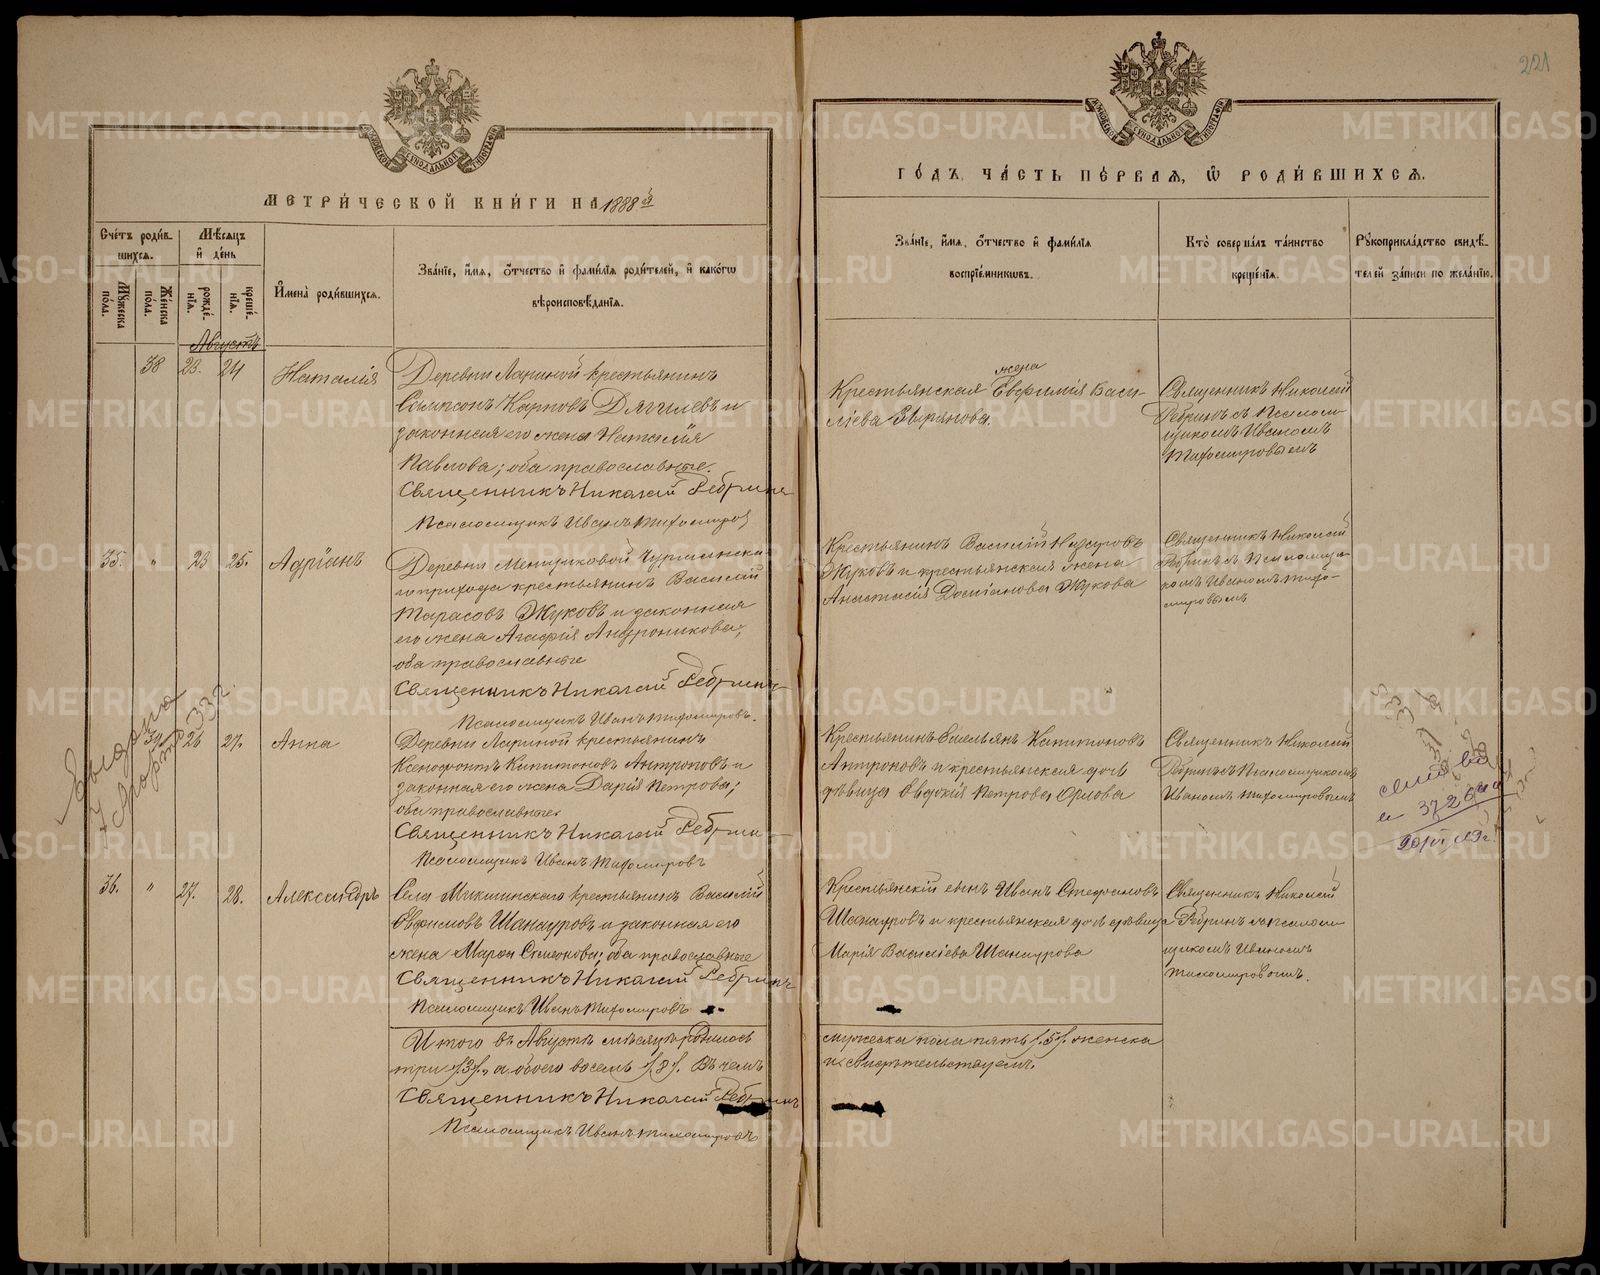 221
МЕТРИ́ЧЕСКОЙ КНИ́ГИ НА 1888й
ГО́ДЪ, ЧА́СТЬ ПЕ́РВАЯ, Ѿ РОДИ́ВШИХСЯ.
Сче́тъ роди́в-
шихся.
Мѣ́сяцъ
и҆ де́нь
Му́жеска
по́ла.
Же́нска
по́ла.
рожде́-
нїя.
креще́-
нїя.
И҆мена̀ роди́вшихся.
Зва́нїе, и҆́мя, ѻ҆́тчество и҆ фами́лїя роди́телей, и҆ како́гѡ
вѣроисповѣ́данїя.
Зва́нїе, и҆́мя, ѻ҆́тчество и҆ фами́лїя
воспрїе́мникѡвъ.
Кто̀ соверша́лъ та́инство
креще́нїя.
Рꙋкоприкла́дство свидѣ́-
телей за́писи по жела́нїю.
Августъ
38 23. 24 Наталія
Деревни Лариной крестьянинъ
Сампсонъ Карповъ Дягилевъ и
законная его жена Наталія
Павлова; оба православные.
Священникъ Николай Ребринъ
Псаломщикъ Иванъ Тихомировъ
жена
Крестьянская Евфимія Васи-
ліева Зырянова.
Священникъ Николай
Ребринъ съ Псалом-
щикомъ Иваномъ
Тихомировымъ
35. " 23 25. Адріанъ
Деревни
го прихода крестьянинъ Василій
Тарасовъ Жуковъ и законная
его жена Агафія Андроникова;
оба православные
Священникъ Николай Ребринъ
Псаломщикъ Иванъ Тихомировъ.
Крестьянинъ Василій
Жуковъ и крестьянская жена
Анастасія Доміанова Жукова
Священникъ Николай
Ребринъ съ Псаломщи-
комъ Иваномъ Тихо-
мировымъ
39 26 27. Анна
Деревни Лариной крестьянинъ
Ксенофонтъ Капитоновъ Антроповъ и
законная его жена Дарія Петрова;
оба православные.
Священникъ Николай Ребринъ
Псаломщикъ Иванъ Тихомировъ
Крестьянинъ Емельянъ Капитоновъ
Антроповъ и крестьянская дочь
дѣвица Евдокія Петрова Орлова
Священникъ Николай
Ребринъ съ Псаломщикомъ
Иваномъ Тихомировымъ
Выдана
33 г.
36. " 27. 28. Александръ
Села Мякишинскаго крестьянинъ Василій
Евфимовъ Шанауровъ и законная его
жена Марѳа Симонова; оба православные
Священникъ Николай Ребринъ
Псаломщикъ Иванъ Тихомировъ
Крестьянскій сынъ Иванъ Стефановъ
Шанауровъ и крестьянская дочь дѣвица
Марія Василіева Шанаурова
Священникъ Николай
Ребринъ съ псалом-
щикомъ Иваномъ
Тихомировымъ.
Итого въ Августѣ мѣсяцѣ родилось
мужеска пола пять /.5/. женска
три /.3/., а обоего восемь /.8/. Въ чемъ
и свидѣтельствуемъ.
Священникъ Николай Ребринъ
Псаломщикъ Иванъ Тихомировъ
METRIKI.GASO-URAL.RU